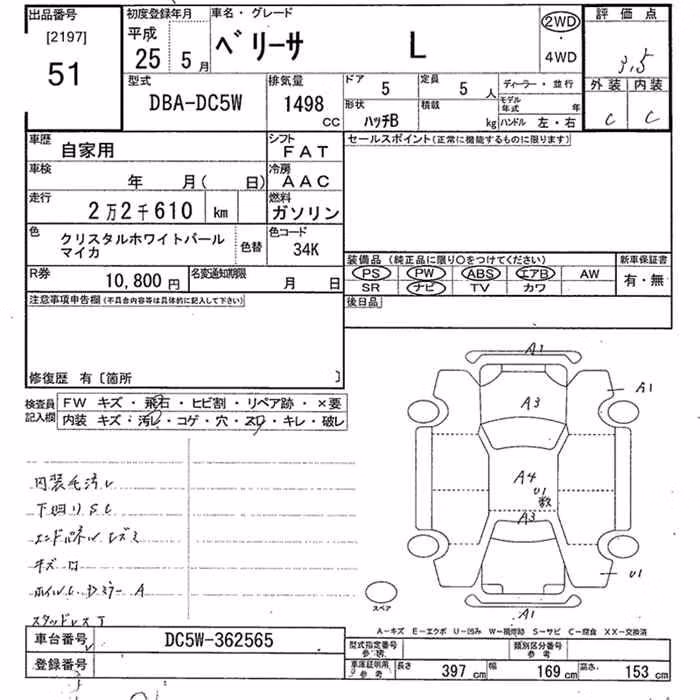 出品番号
[2197]
51
初度登録年月
平成
25 5 月
車名・グレード
ベリーサ L
2WD
4WD
評価点
3.5
外装 内装
C C
型式
DBA-DC5W
排気量
1498
CC
ドア
5
定員
5 人
ディーラー・並行
形状
ハッチB
積載
kg
モデル年式
年
ハンドル 左・右
車歴
自家用
シフト
FAT
車検
年 月( 日)
冷房
AAC
走行
2万2千610 km
燃料
ガソリン
色
クリスタルホワイトパール
マイカ
色替
色コード
34K
R券
10,800 円
名変通知期限
月 日
セールスポイント(正常に機能するものに限ります)
装備品(純正品に限り○をつけてください)
新車保証書
PS PW ABS エアB AW
SR ナビ TV カワ
有・無
後日品
注意事項申告欄(不具合内容等は具体的に記入して下さい)
修復歴 有〔箇所 〕
検査員
記入欄
FW キズ・飛石・ヒビ割・リペア跡・×要
内装 キズ・汚レ・コゲ・穴・スリ・キレ・破レ
内装毛汚レ
下回りSC
エンドパネル
キズ
A
スタッドレス
A1
A1
A3
A4
U1
数
A3
U1
A1
スペア
A-キズ E-エクボ U-凹み W-補修跡 S-サビ C-腐食 XX-交換済
車台番号
DC5W-362565
登録番号
型式指定番号
参考
類別区分番号
参考
車庫証明用
参考
長さ 397 cm
幅 169 cm
高さ 153 cm